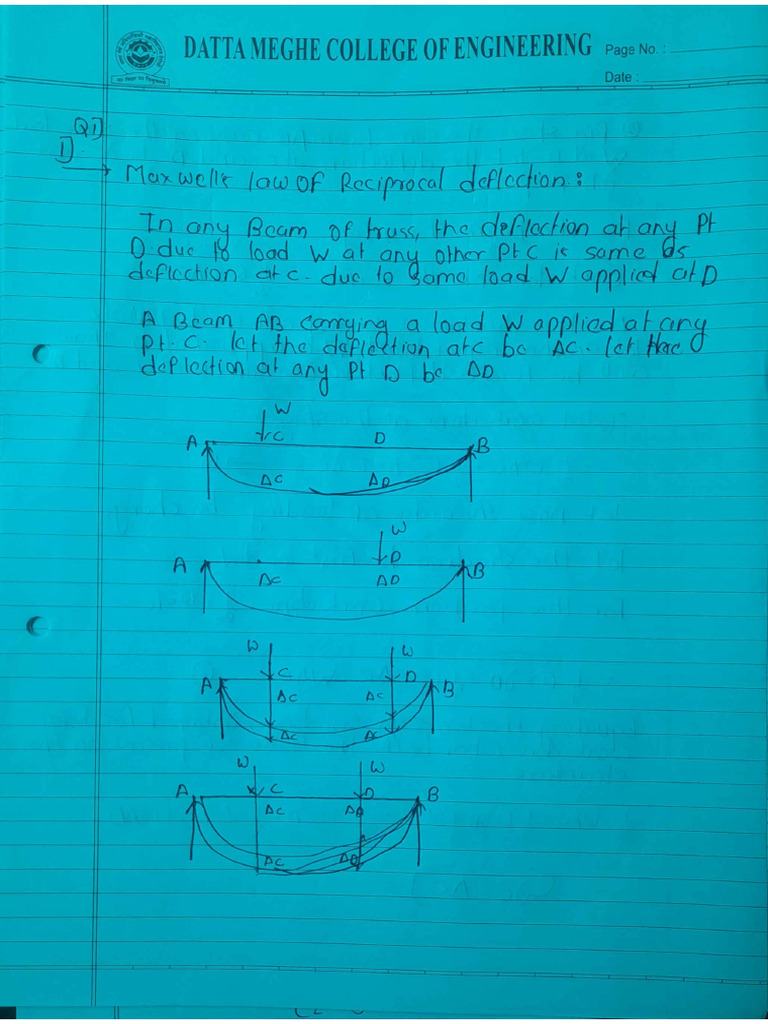 DATTA MEGHE COLLEGE OF ENGINEERING
Page No. :
Date :
Q1)
1)
Maxwell's law OF Reciprocal deflection :
In any Beam of truss, the deflection at any Pt
D. due to load W at any other Pt C is same as
deflection at c. due to same load W applied at D
A Beam AB carrying a load W applied at any
Pt. C. let the deflection at C be ΔC. let the
deflection at any Pt D be ΔD
W
A C D B
ΔC ΔD
W
A D B
ΔC ΔD
W W
A C D B
ΔC ΔC
ΔC
W W
A C D B
ΔC ΔD
ΔC ΔD